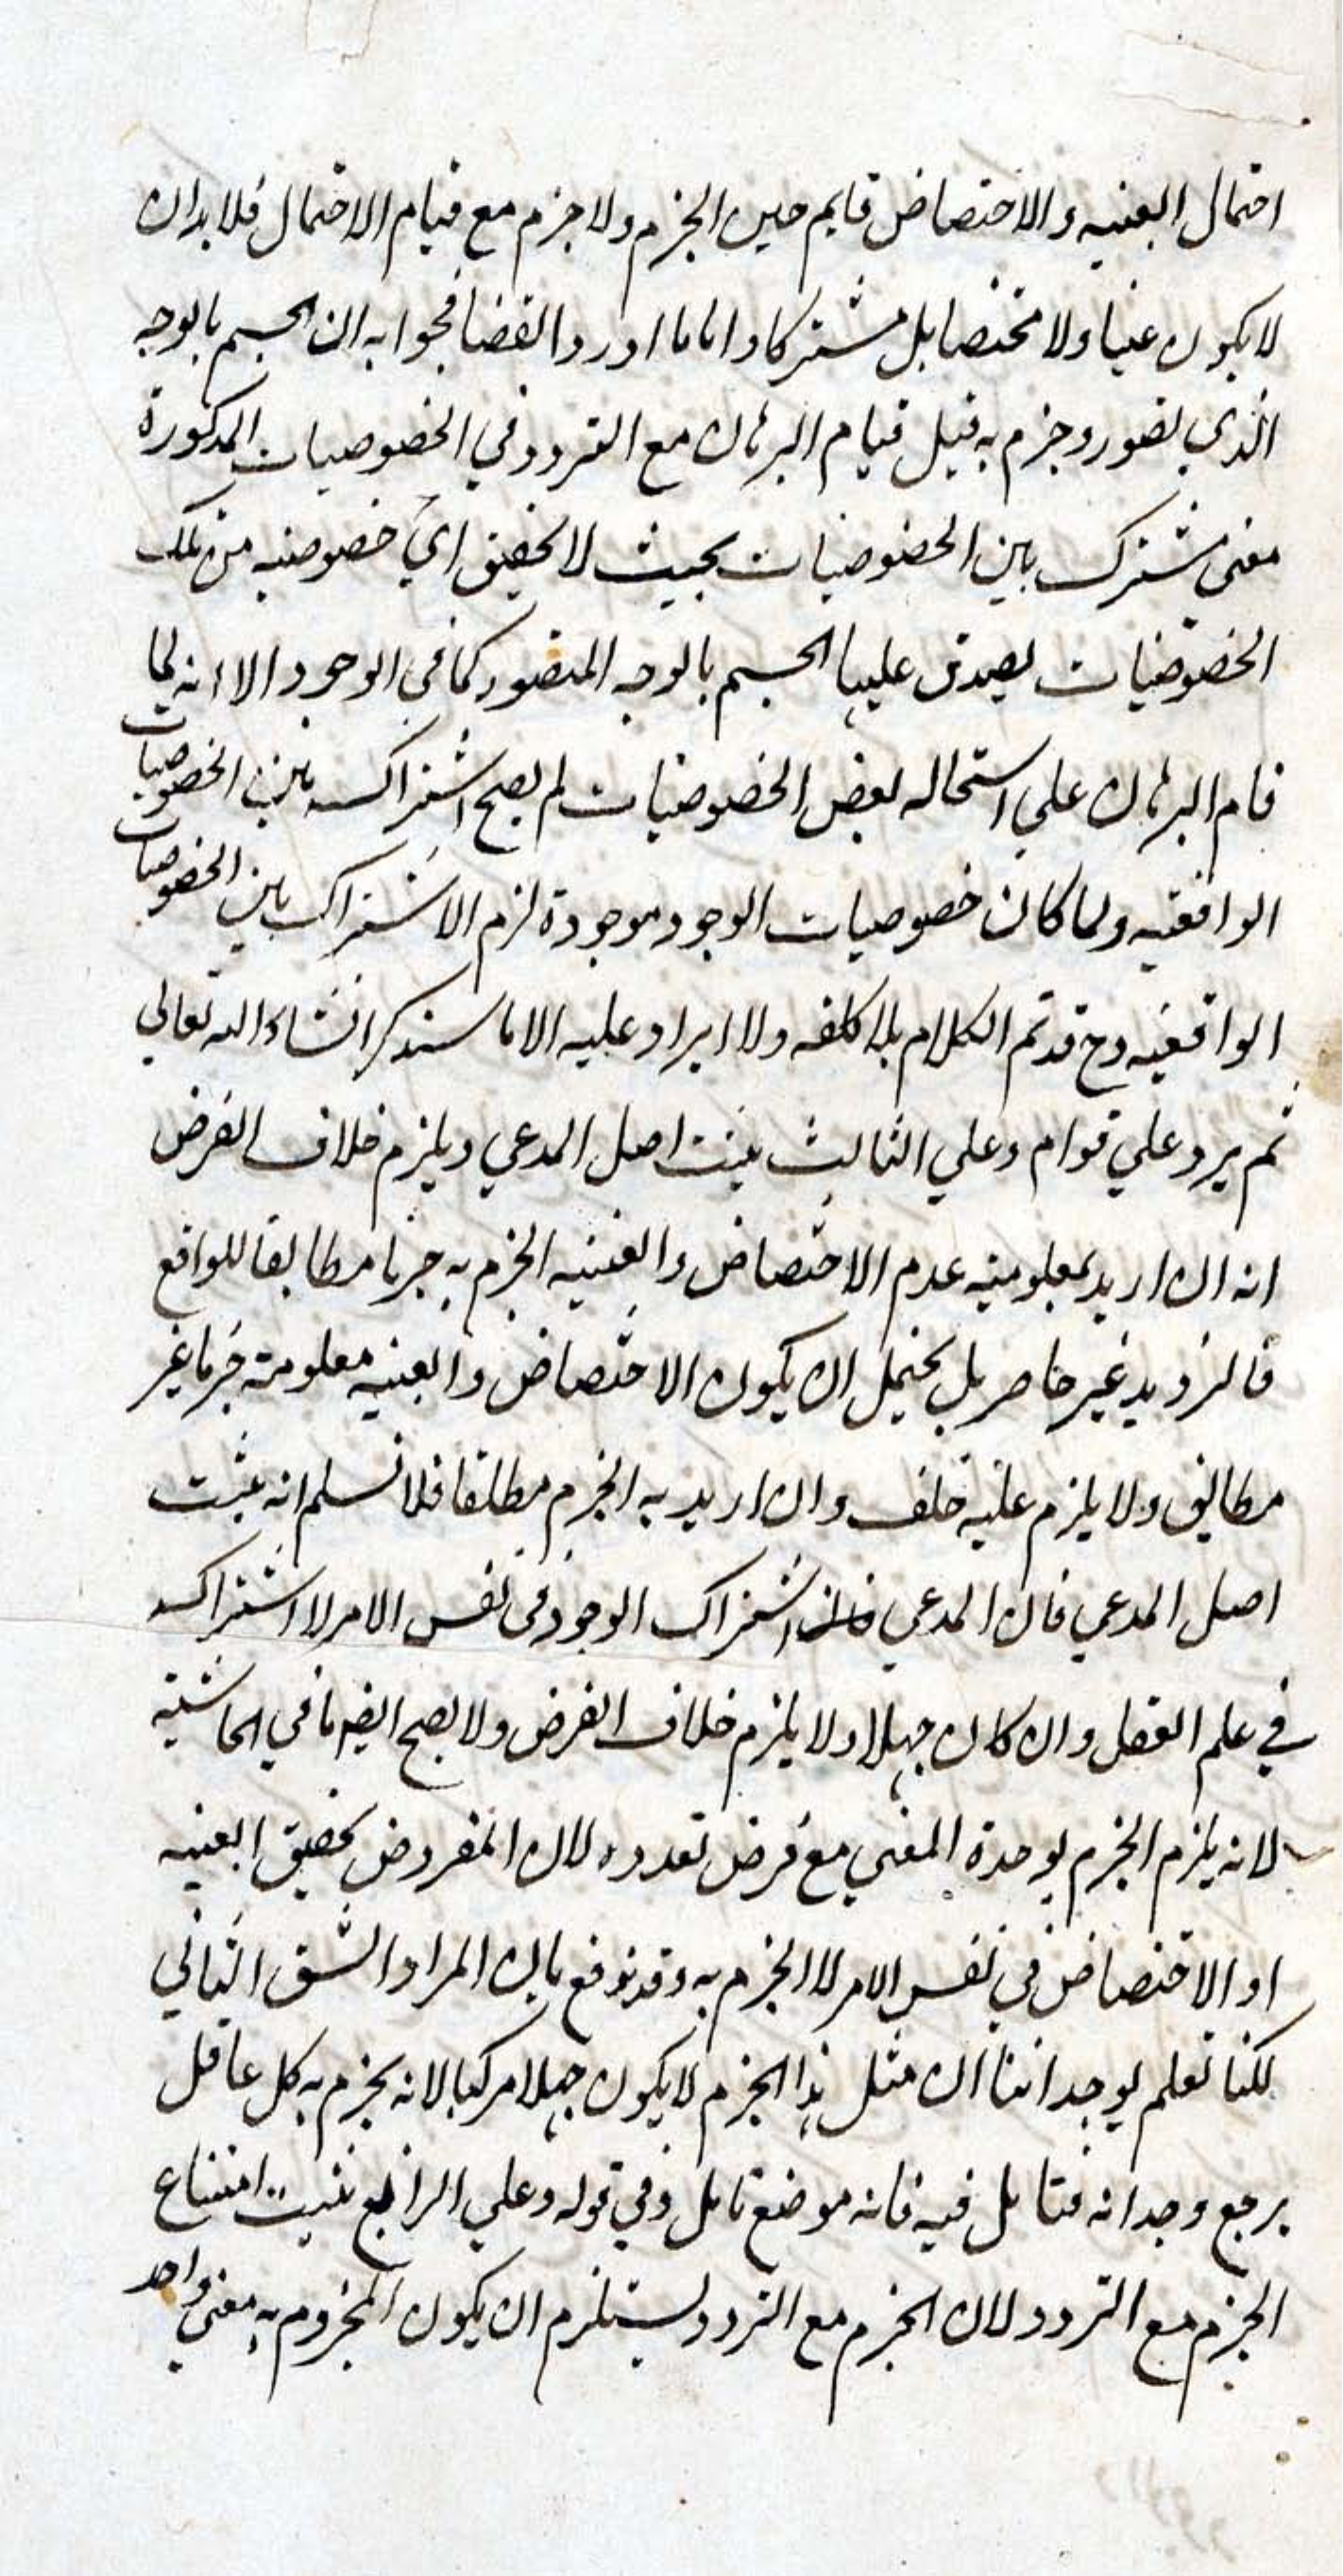 احتمال العينيه والاختصاص قايم حين الجزم ولا جزم مع قيام الاحتمال فلا بد ان
لا يكون عينا ولا مختصا بل مشتركا واما ما اورد القضا فجوابه ان الجسم بالوجه
الذي تصور وجزم به قبل قيام البرهان مع التردد في الخصوصيات المذكورة
معنى مشترك بين الخصوصيات بحيث لا تحقق اي خصوصيه من تلك
الخصوصيات يصدق عليها الجسم بالوجه المتصور كما في الوجود الا انه لما
قام البرهان علي استحاله بعض الخصوصيات لم يصح اشتراكه بين الخصوصيات
الواقعيه ولما كان خصوصيات الوجود موجودة لزم الاشتراك بين الخصوصيات
الواقعيه وح قد تم الكلام بلا كلفه ولا ايراد عليه الا ما سنذكر انشاء الله تعالي
ثم يرد علي قوام وعلي الثالث يثبت اصل المدعي ويلزم خلاف الفرض
انه ان اريد بمعلوميته عدم الاختصاص والعينيه الجزم به جزما مطابقا للواقع
فالترديد غير حاصر بل يحتمل ان يكون الاختصاص والعينيه معلومة جزما غير
مطابق ولا يلزم عليه خلف وان اريد به الجزم مطلقا فلا نسلم انه يثبت
اصل المدعي فان المدعي اشتراك الوجود في نفس الامر لا اشتراكه
في علم العقل وان كان جهلا ولا يلزم خلاف الفرض ولا يصح ايضا ما في الحاشية
لانه يلزم الجزم بوحدة المعني مع فرض تعدده لان المفروض تحقق العينيه
او الاختصاص في نفس الامر لا الجزم به وقد يدفع بان المراد الشق الثاني
لكنا نعلم بوجداننا ان مثل هذا الجزم لا يكون جهلا مركبا لانه يجزم به كل عاقل
يرجع وجدانه فتامل فيه فانه موضع تامل وفي قوله وعلي الرابع يثبت امتناع
الجزم مع التردد لان الجزم مع التردد يستلزم ان يكون المجزوم به معنى واحد